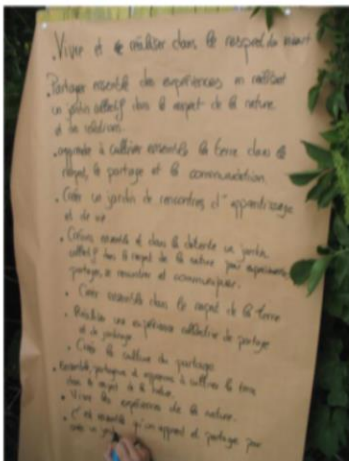 . Vivre et se réaliser dans le respect du vivant
. Partager ensemble des expériences en réalisant
un jardin collectif dans le respect de la nature
et des relations.
. apprendre à cultiver ensemble la terre dans le
respect, le partage et la communication.
. Créer un jardin de rencontres d'apprentissage
et de vie
. Créons ensemble et dans la détente un jardin
collectif dans le respect de la nature pour expérimenter
partager, se rencontrer et communiquer.
. Créer ensemble dans le respect de la terre
. Réaliser une expérience collective de partage
et de jardinage
. Créer la culture du partage
. Ensemble, partageons et apprenons à cultiver la terre
dans le respect de la nature.
. Vivre les expériences de la nature.
. C'est ensemble qu'on apprend et partage pour
créer un